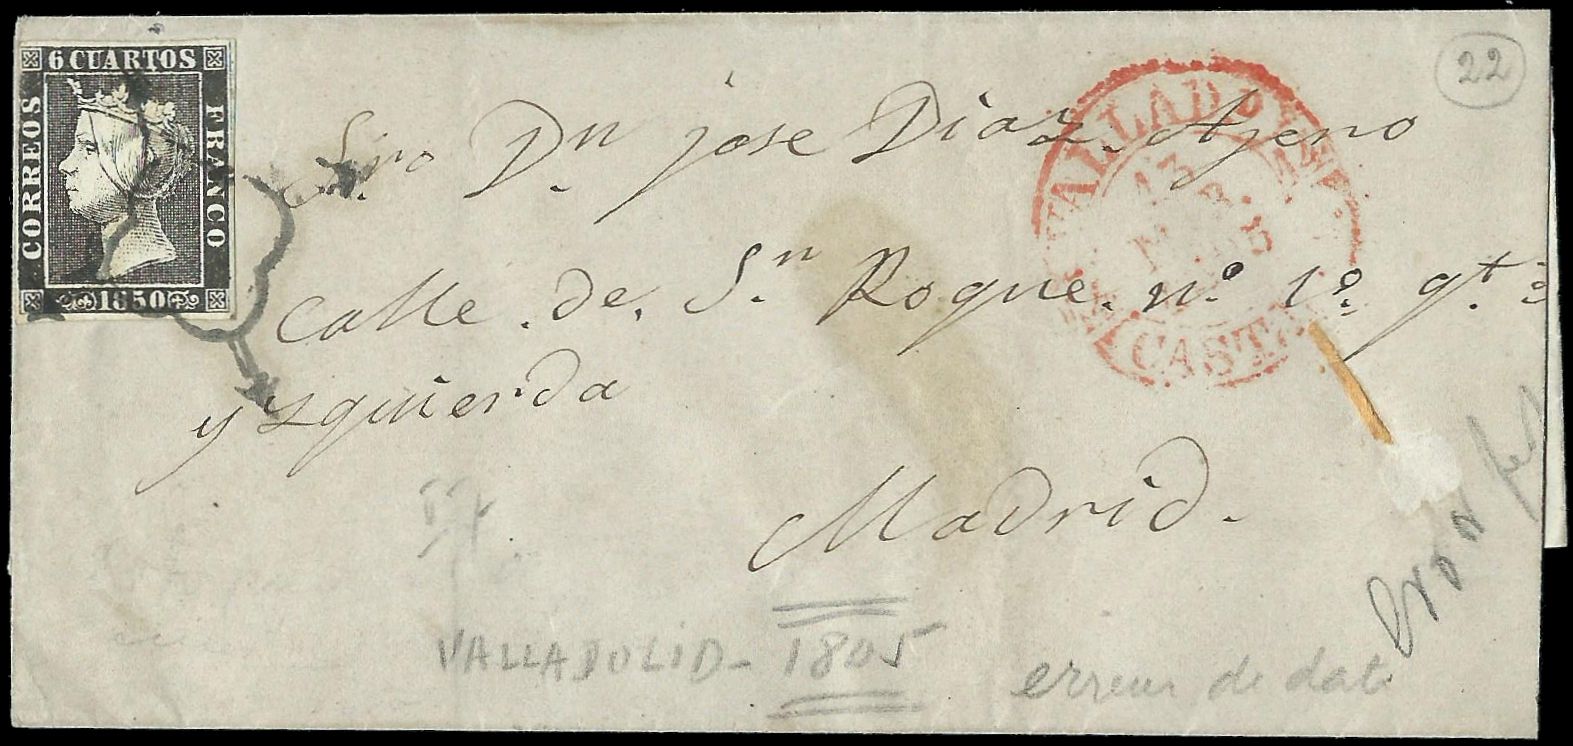 6 CUARTOS
CORREOS
FRANCO
1850
22
Sro Dn jose Diaz Ajero
Calle de Sn Roque nº 1º
yzquierda
Madrid.
VALLADO
13
1805
CAST
VALLADOLID - 1805
erreur de date